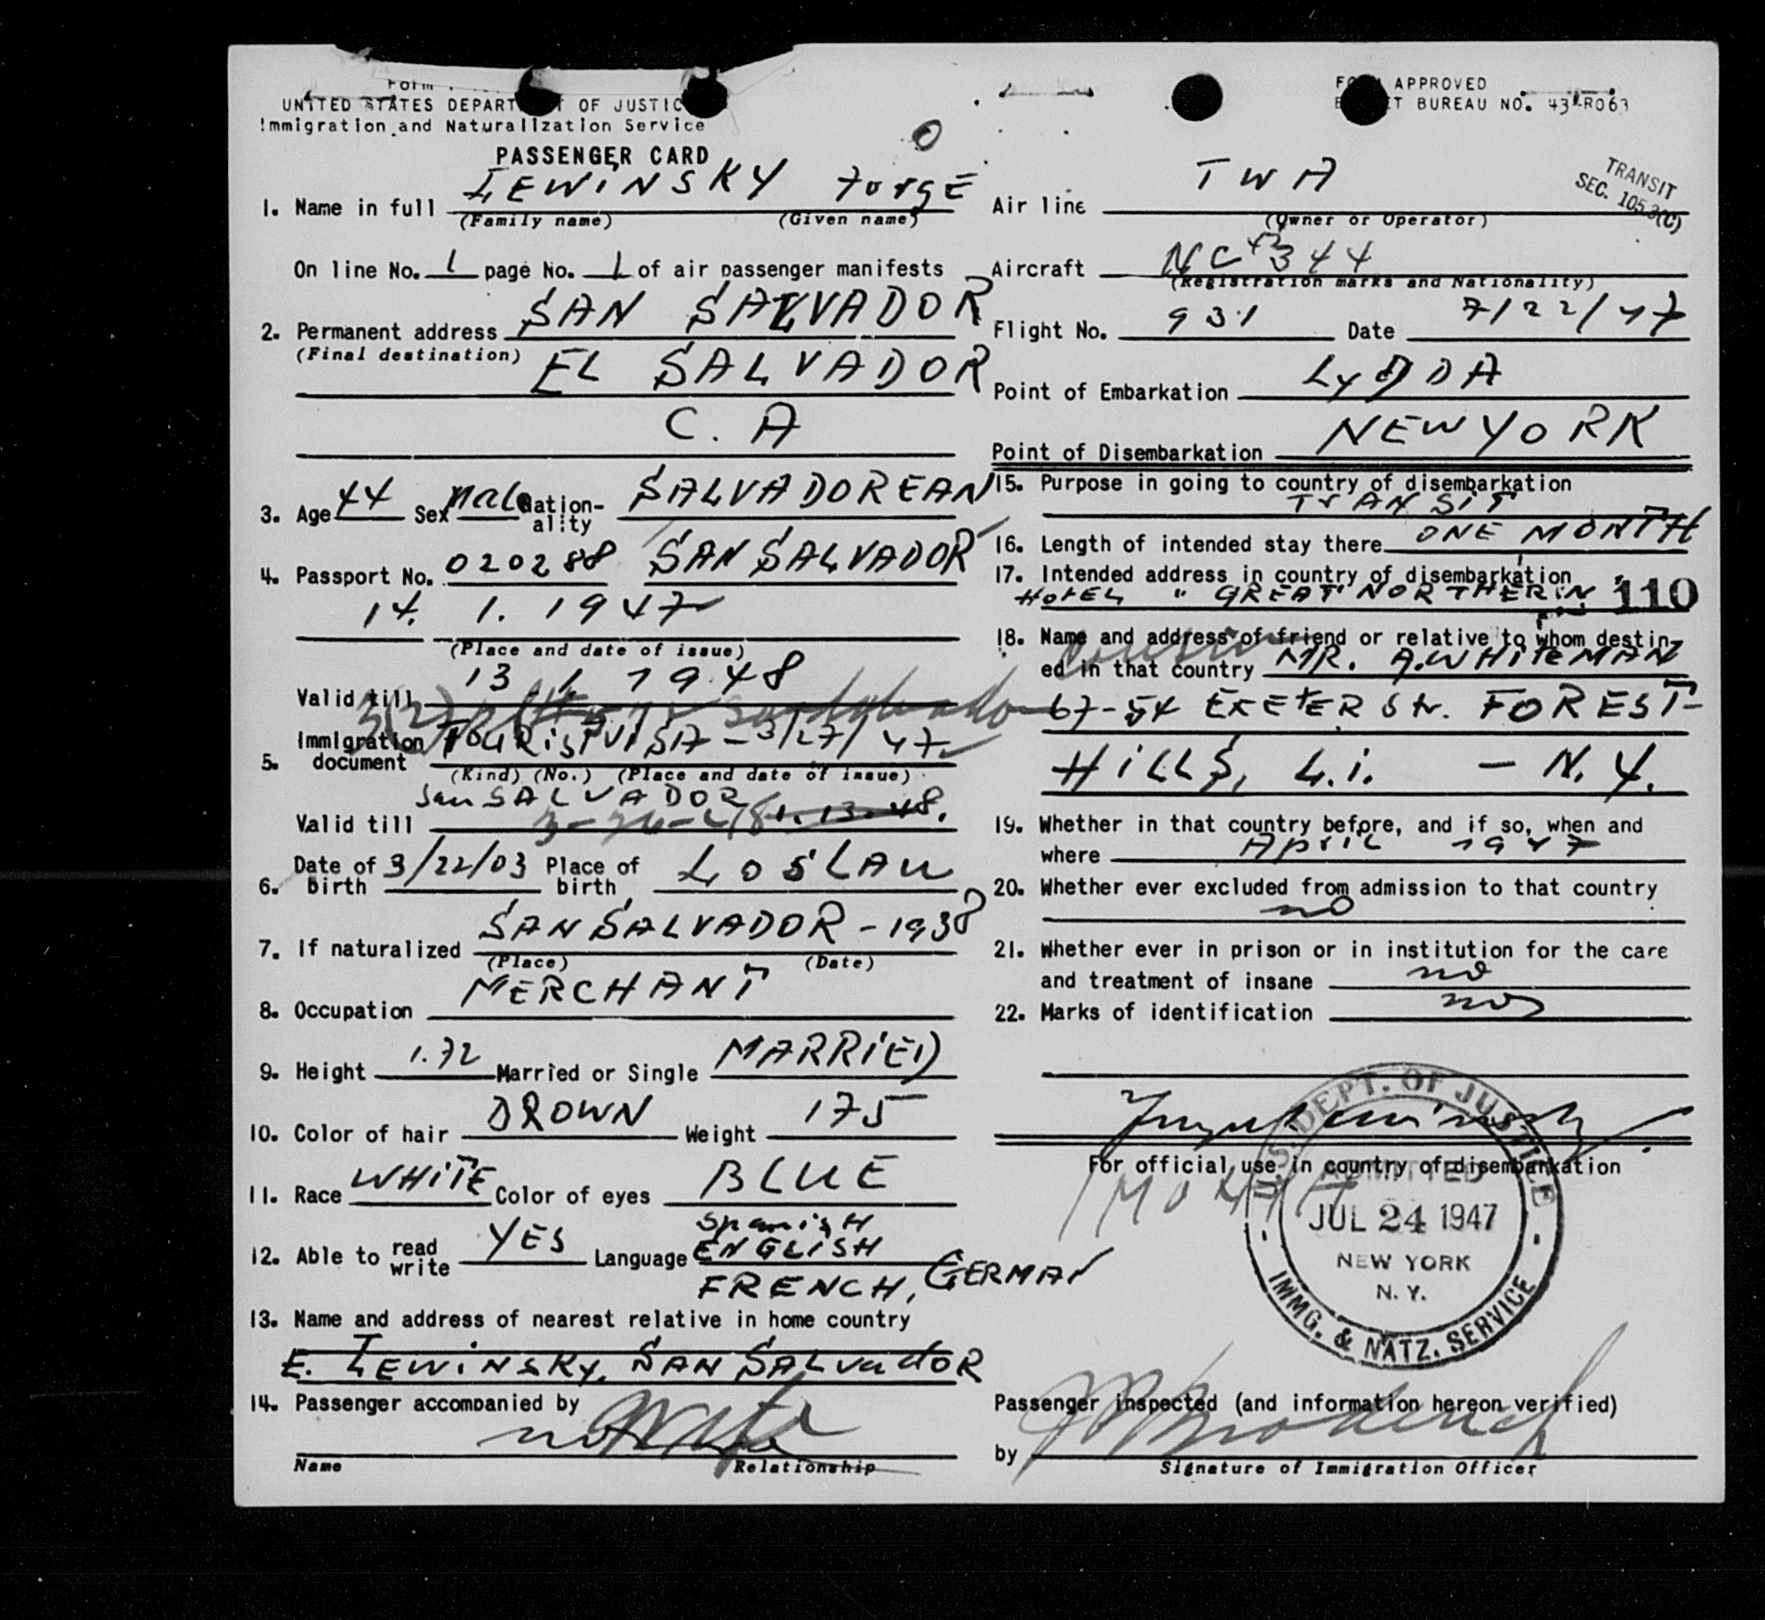 UNITED STATES DEPARTMENT OF JUSTICE
Immigration and Naturalization Service
PASSENGER CARD
1. Name in full LEWINSKY JorgE
(Family name) (Given name)
On line No. 1 page No. 1 of air passenger manifests
2. Permanent address SAN SALVADOR
(Final destination) EL SALVADOR
C. A
3. Age 44 Sex male Nationality SALVADOREAN
4. Passport No. 020288 SAN SALVADOR
14. 1. 1947
(Place and date of issue)
Valid till 13. 1. 1948
5. Immigration document TOURIST VISA - 3/27/47
(Kind) (No.) (Place and date of issue)
San SALVADOR
Valid till 3-26-48 1. 13. 48.
6. Date of birth 3/22/03 Place of birth LOSLAU
7. If naturalized SAN SALVADOR - 1938
(Place) (Date)
8. Occupation MERCHANT
9. Height 1.72 Married or Single MARRIED
10. Color of hair BROWN Weight 175
11. Race WHITE Color of eyes BLUE
12. Able to read write YES Language SpanisH
ENGLISH
FRENCH, GERMAN
13. Name and address of nearest relative in home country
E. LEWINSKY, SAN SALVadOR
14. Passenger accompanied by
Name Relationship
FORM APPROVED
BUDGET BUREAU NO. 43-R063
TRANSIT
SEC. 105.3(C)
Air line TWA
(Owner or Operator)
Aircraft NC 344
(Registration marks and Nationality)
Flight No. 931 Date 7/22/47
Point of Embarkation LYDDA
Point of Disembarkation NEW YORK
15. Purpose in going to country of disembarkation
TrANSIT
16. Length of intended stay there ONE MONTH
17. Intended address in country of disembarkation
HOTEL " GREAT NORTHERN " 110
18. Name and address of friend or relative to whom destin-
ed in that country MR. A. WHITEMAN
67-54 EXETER Str. FOREST-
HILLS, L.i. - N.Y.
19. Whether in that country before, and if so, when and
where April 1947
20. Whether ever excluded from admission to that country
no
21. Whether ever in prison or in institution for the care
and treatment of insane no
22. Marks of identification no
For official use in country of disembarkation
1 MONTH
U.S. DEPT. OF JUSTICE
ADMITTED
JUL 24 1947
NEW YORK
N. Y.
IMMG. & NATZ. SERVICE
Passenger inspected (and information hereon verified)
by
Signature of Immigration Officer